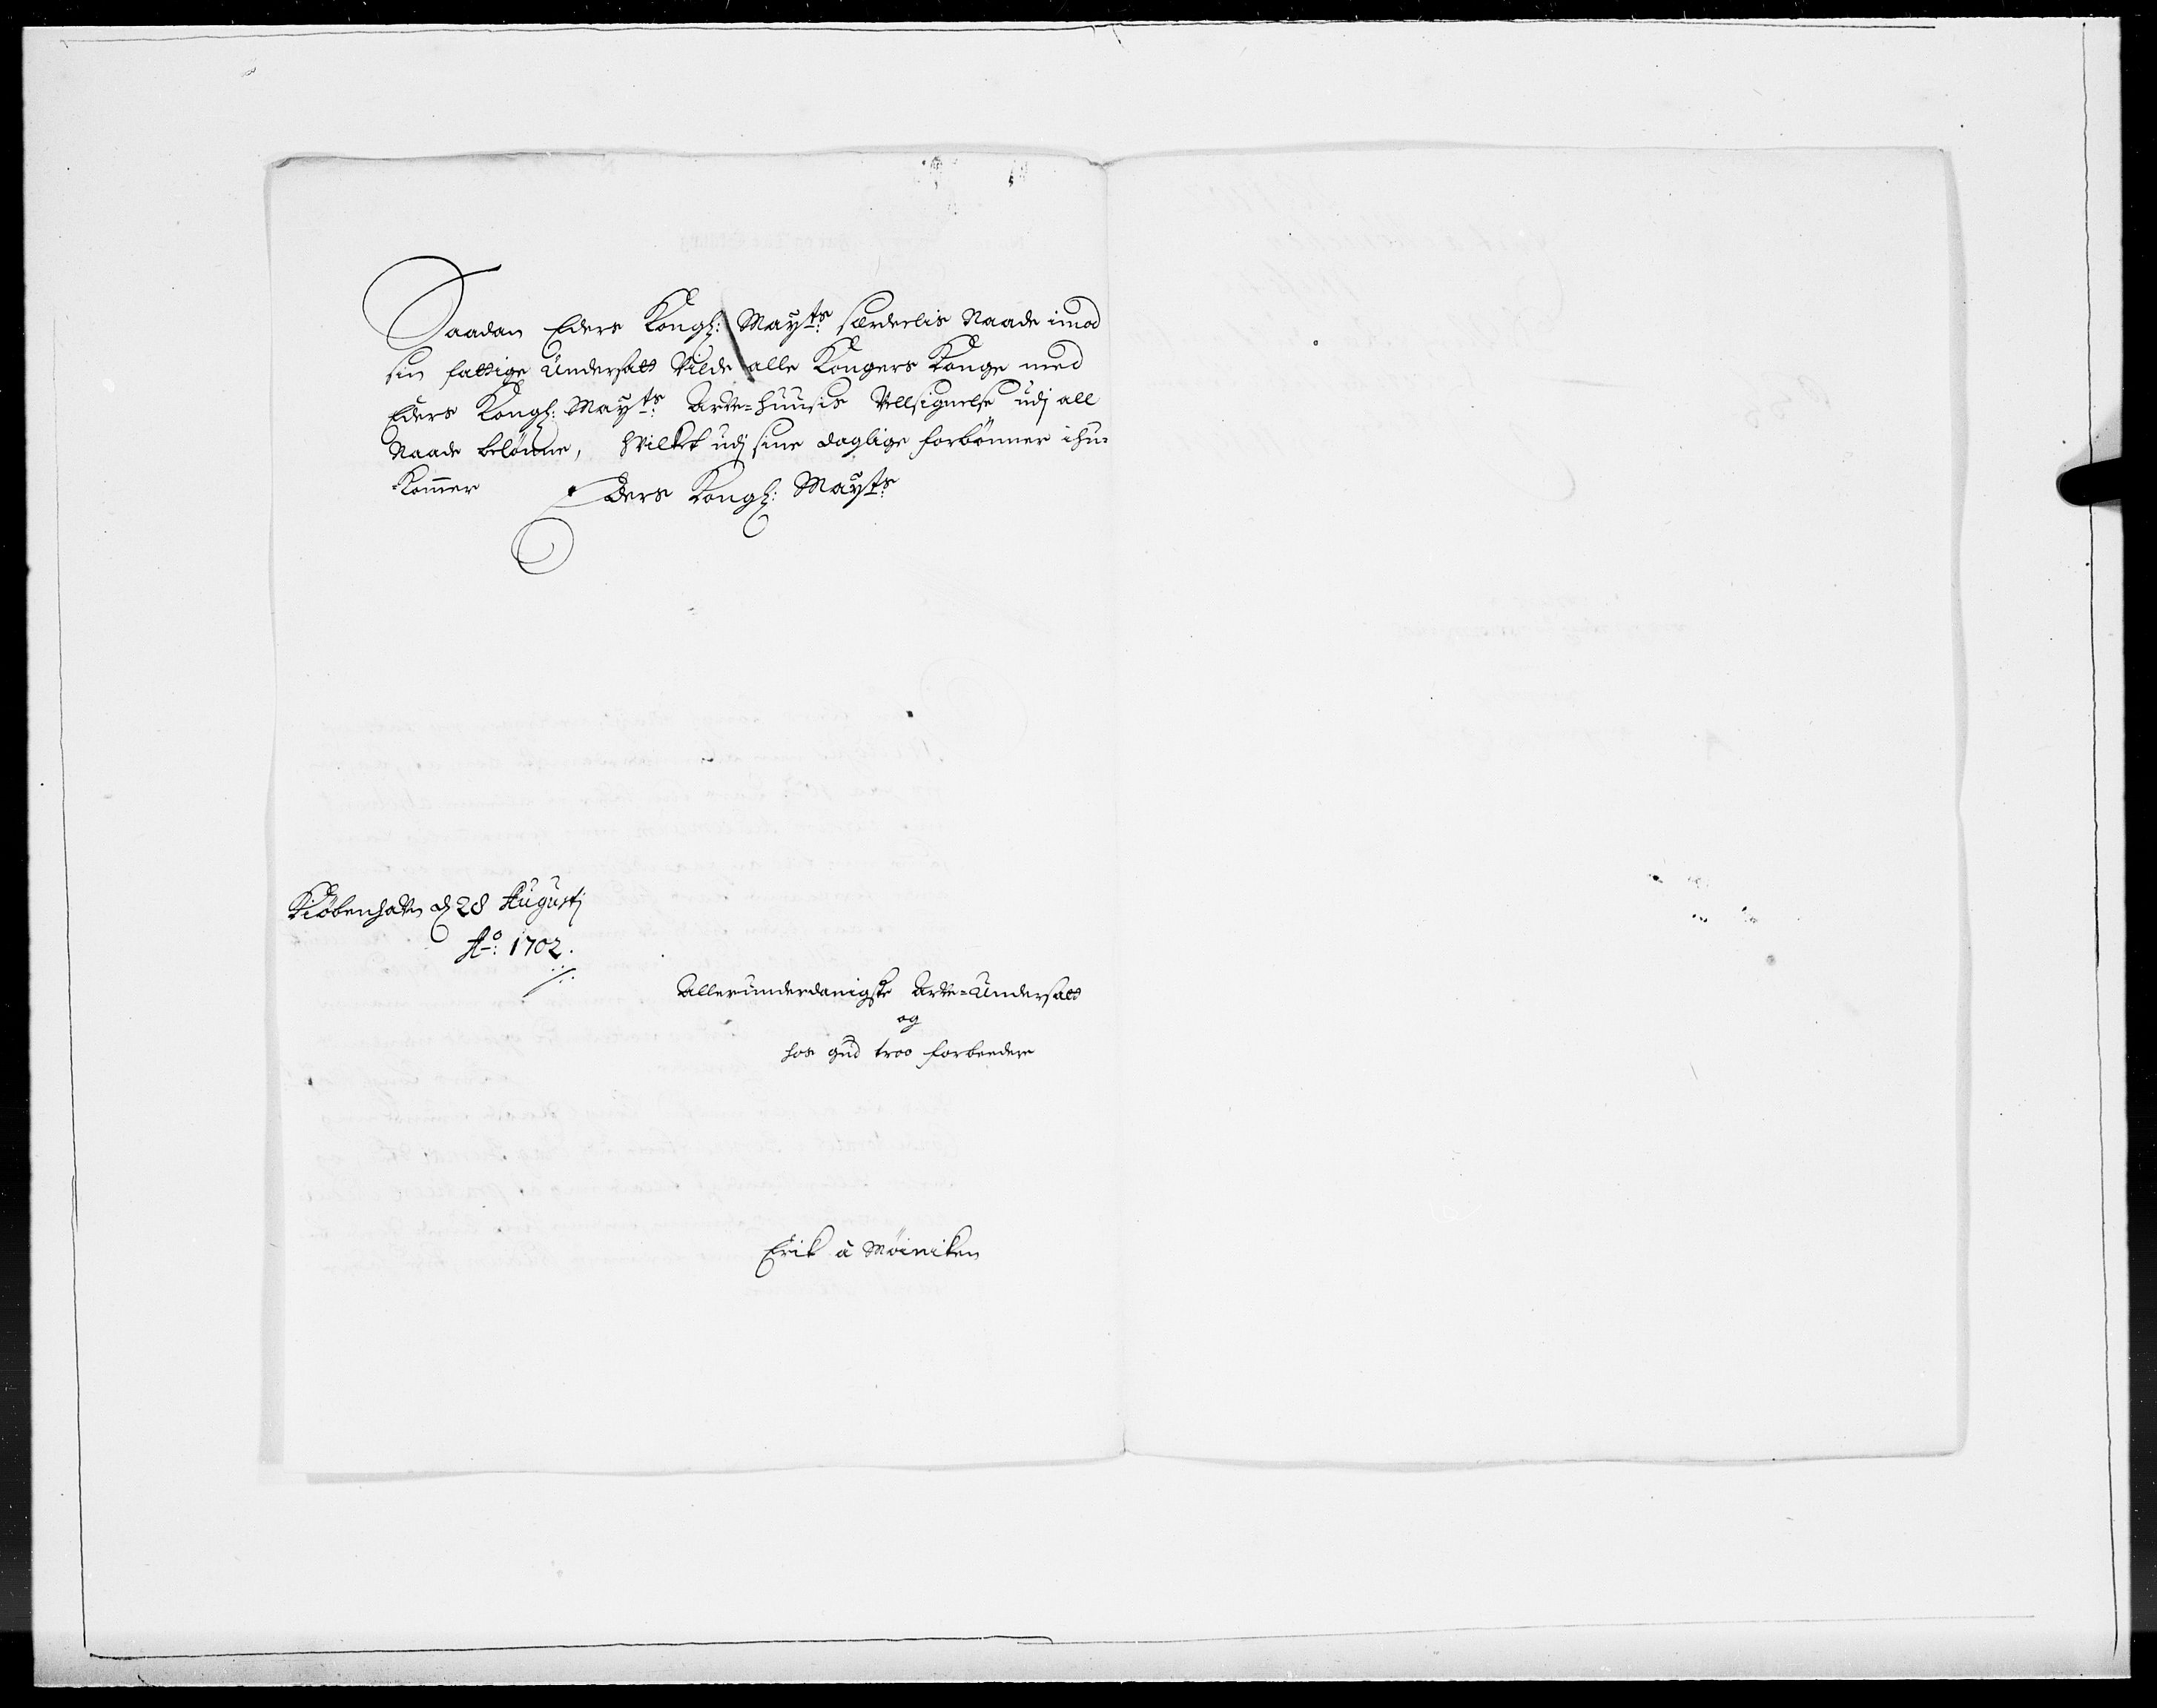 Saadan Eders Kongl: Mayts: særdelis Naade imod
sin fattige Undersatt Vilde alle Kongers Konge med
Eders Kongl: Mayts: Arve=Huusis Vellsignelse udj all
Naade belönne, Hvilket udj sine daglige forbönner ihu=
=kommer Eders Kongl: Mayts:
Kiöbenhavn d 28 Augustj
Ao: 1702.
Allerunderdanigste Arve=Undersatt
og
hos gud troo forbeedere
Erik á Möiniken